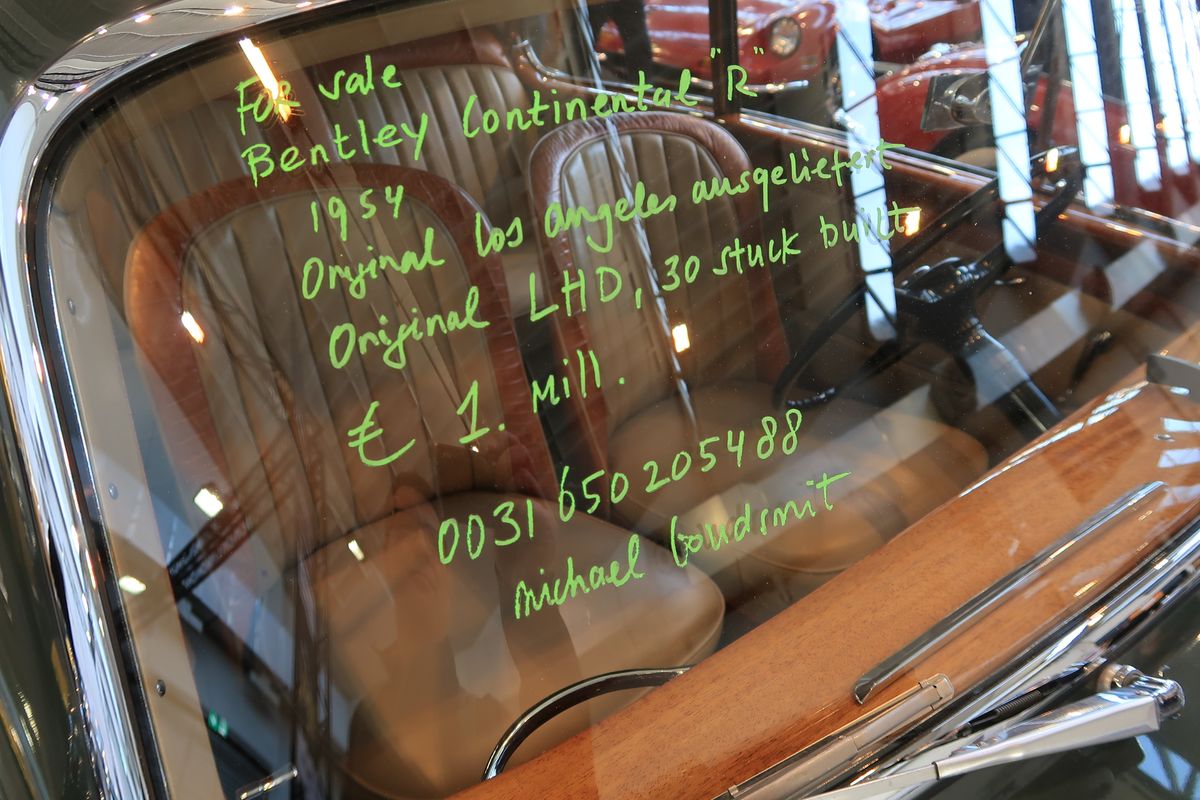 For sale
Bentley Continental "R"
1954
Original Los Angeles ausgeliefert
Original LHD, 30 stuck built
€ 1. Mill.
0031 650 205488
michael Goudsmit